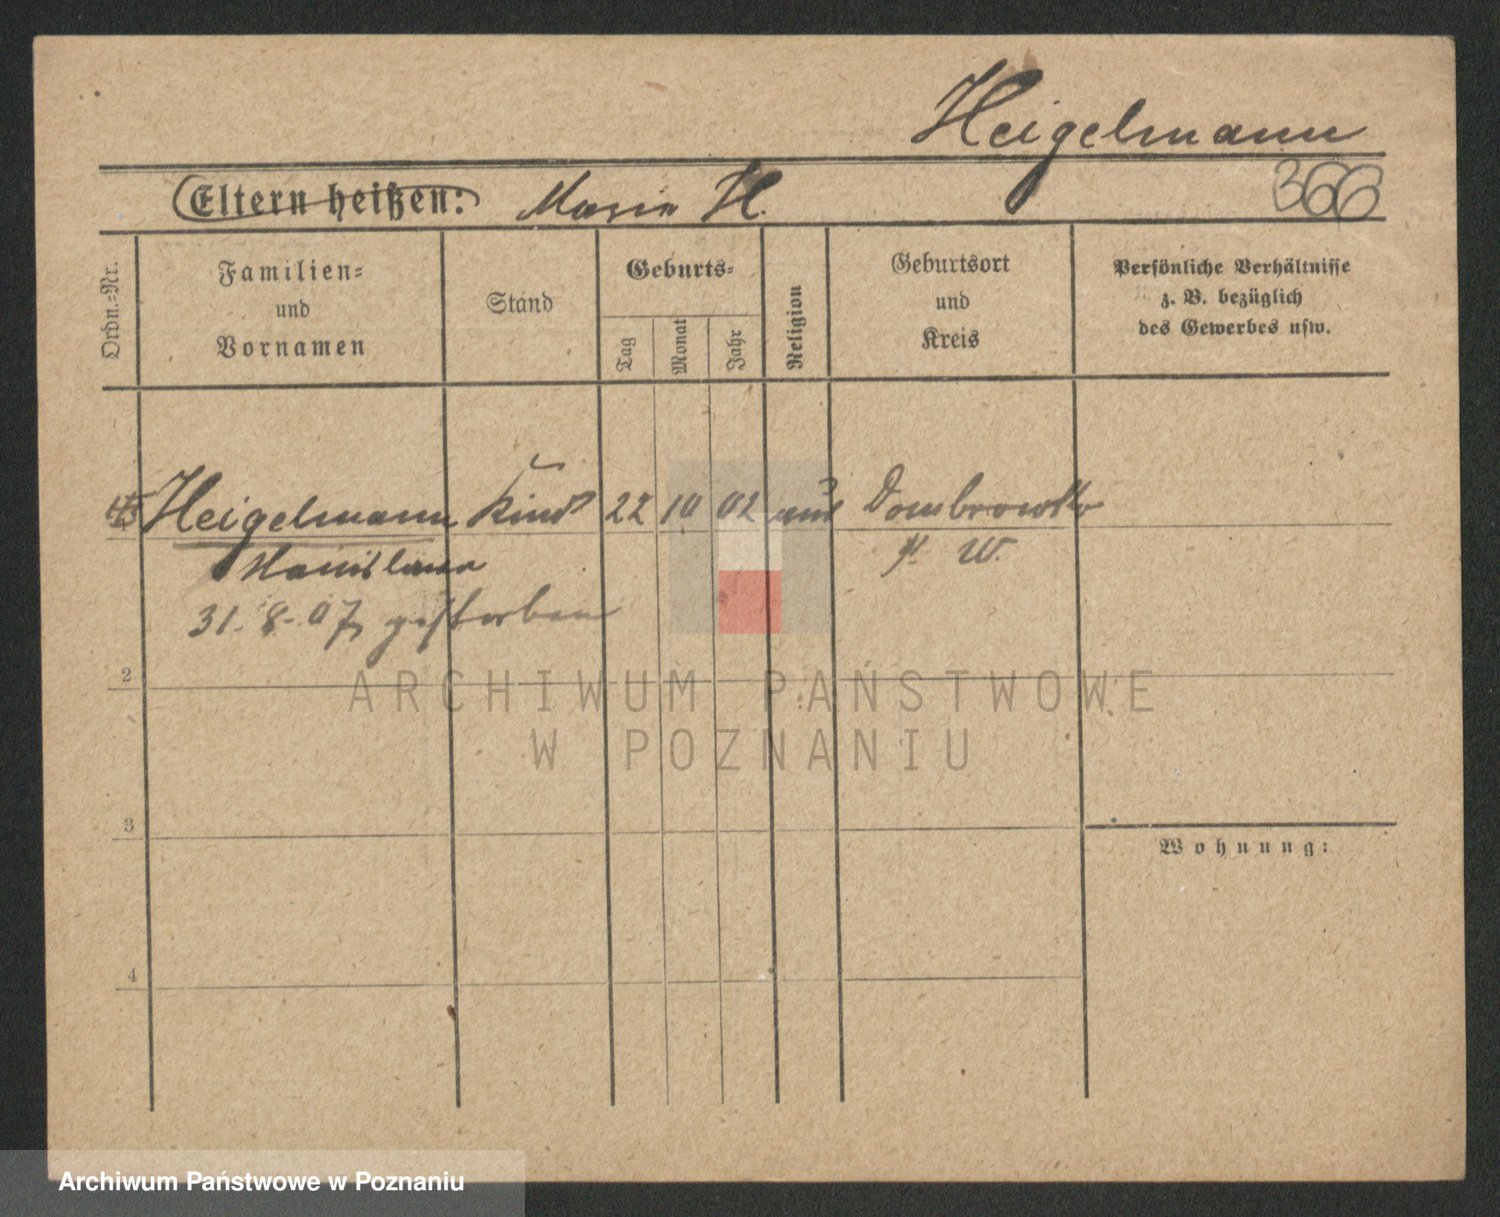 Heigelmann
Eltern heißen: Maria H.
366
Ordn.-Nr.
Familien-
und
Vornamen
Stand
Geburts-
Tag
Monat
Jahr
Religion
Geburtsort
und
Kreis
Persönliche Verhältnisse
z. B. bezüglich
des Gewerbes usw.
Heigelmann Kind 22 10 02 Dombrowko
Stanislaus W.
31.8.07 gestorben
2
ARCHIWUM PAŃSTWOWE
W POZNANIU
3
Wohnung:
4
Archiwum Państwowe w Poznaniu